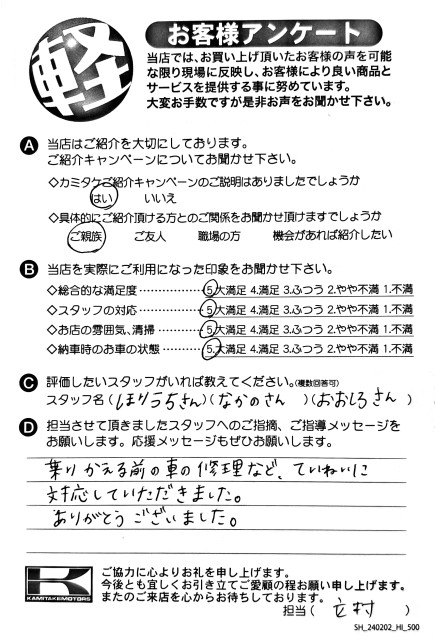 軽
お客様アンケート
当店では、お買い上げ頂いたお客様の声を可能
な限り現場に反映し、お客様により良い商品と
サービスを提供する事に努めています。
大変お手数ですが是非お声をお聞かせ下さい。
A 当店はご紹介を大切にしております。
ご紹介キャンペーンについてお聞かせ下さい。
◇カミタケご紹介キャンペーンのご説明はありましたでしょうか
はい いいえ
◇具体的にご紹介頂ける方とのご関係をお聞かせ頂けますでしょうか
ご親族 ご友人 職場の方 機会があれば紹介したい
B 当店を実際にご利用になった印象をお聞かせ下さい。
◇総合的な満足度 ・・・・・・・・・・・・ 5.大満足 4.満足 3.ふつう 2.やや不満 1.不満
◇スタッフの対応 ・・・・・・・・・・・・ 5.大満足 4.満足 3.ふつう 2.やや不満 1.不満
◇お店の雰囲気、清掃 ・・・・・・・・ 5.大満足 4.満足 3.ふつう 2.やや不満 1.不満
◇納車時のお車の状態 ・・・・・・・ 5.大満足 4.満足 3.ふつう 2.やや不満 1.不満
C 評価したいスタッフがいれば教えてください。(複数回答可)
スタッフ名(ほりうちさん)(なかのさん)(おおしろさん)
D 担当させて頂きましたスタッフへのご指摘、ご指導メッセージを
お願いします。応援メッセージもぜひお願いします。
乗りかえる前の車の修理など、ていねいに
対応していただきました。
ありがとうございました。
KAMITAKEMOTORS
ご協力に心よりお礼を申し上げます。
今後とも宜しくお引き立てご愛顧の程お願い申し上げます。
またのご来店を心からお待ちしております。
担当(立村)
SH_240202_HI_500